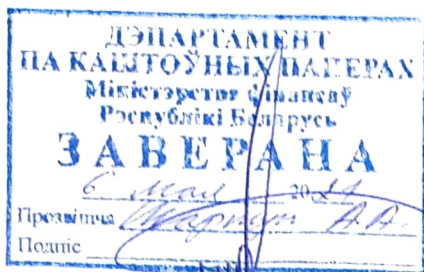 ДЭПАРТАМЕНТ
ПА КАШТОЎНЫХ ПАПЕРАХ
Міністэрства фінансаў
Рэспублікі Беларусь
ЗАВЕРАНА
6 мая 20
Прозвішча А.А.
Подпіс